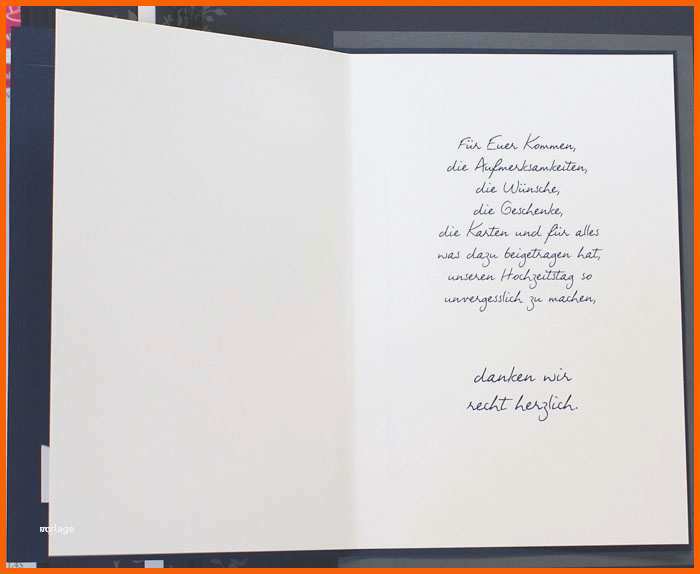 Für Euer Kommen,
die Aufmerksamkeiten,
die Wünsche,
die Geschenke,
die Karten und für alles
was dazu beigetragen hat,
unseren Hochzeitstag so
unvergesslich zu machen,
danken wir
recht herzlich.